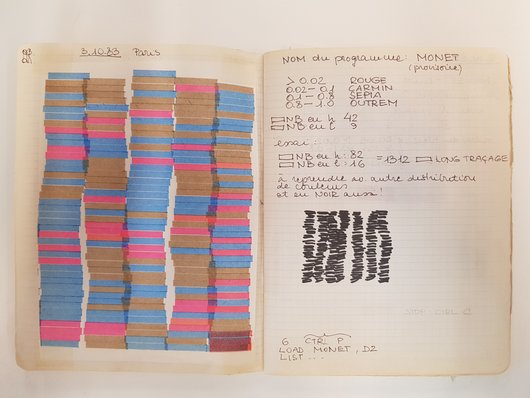 3.10.83 Paris
NOM du programme: MONET
(provisoire)
> 0.02 ROUGE
0.02-0.1 CARMIN
0.1-0.8 SEPIA
0.8-1.0 OUTREM
NB en h 42
NB en l 9
essai:
NB en h: 82
NB en l: 16 = 1312 LONG TRAÇAGE
à reprendre av. autre distribution
de couleurs
et en NOIR aussi!
6 CTRL P
LOAD MONET, D2
LIST...